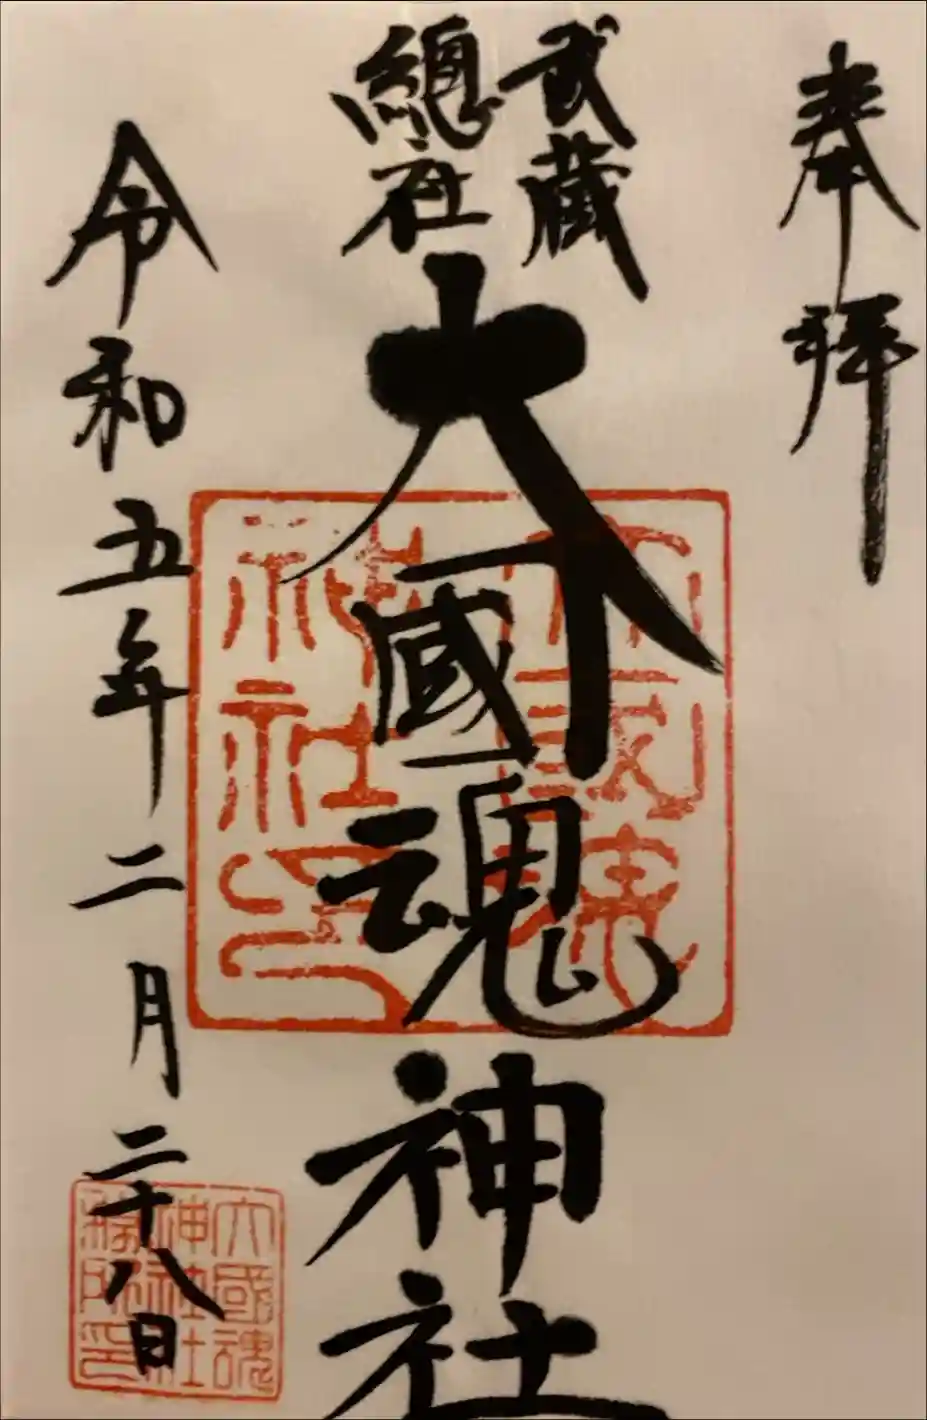 奉拝
武蔵
總社
大國魂神社
令和五年二月二十八日
大國魂
神社印
大國魂
神社社
務所印